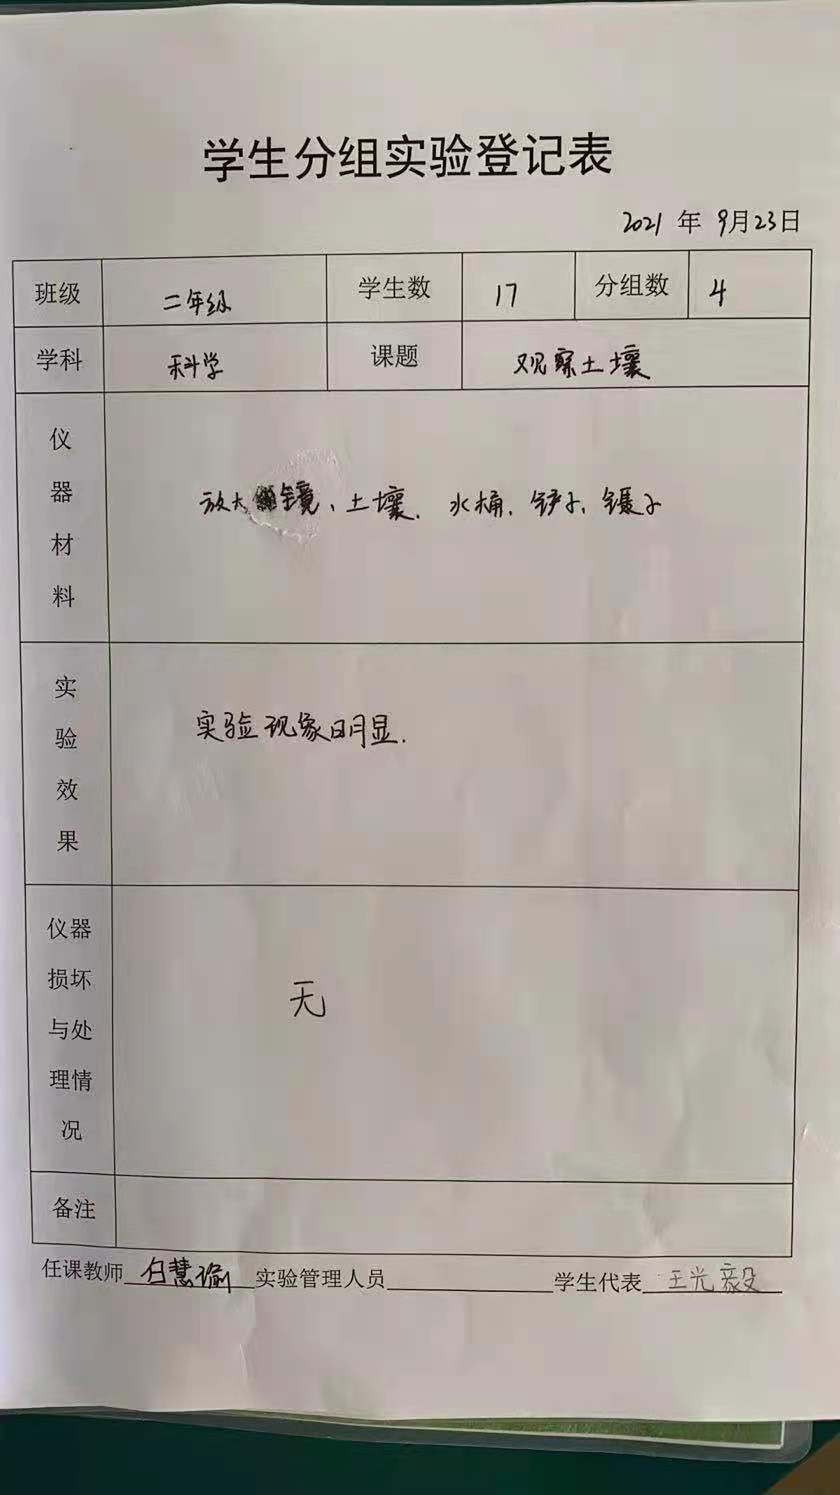 学生分组实验登记表
2021 年 9月23日
班级 二年级 学生数 17 分组数 4
学科 科学 课题 观察土壤
仪器材料 放大镜、土壤、水桶、铲子、镊子
实验效果 实验现象明显.
仪器
损坏
与处
理情
况 无
备注
任课教师 白慧瑜 实验管理人员 学生代表 王光毅